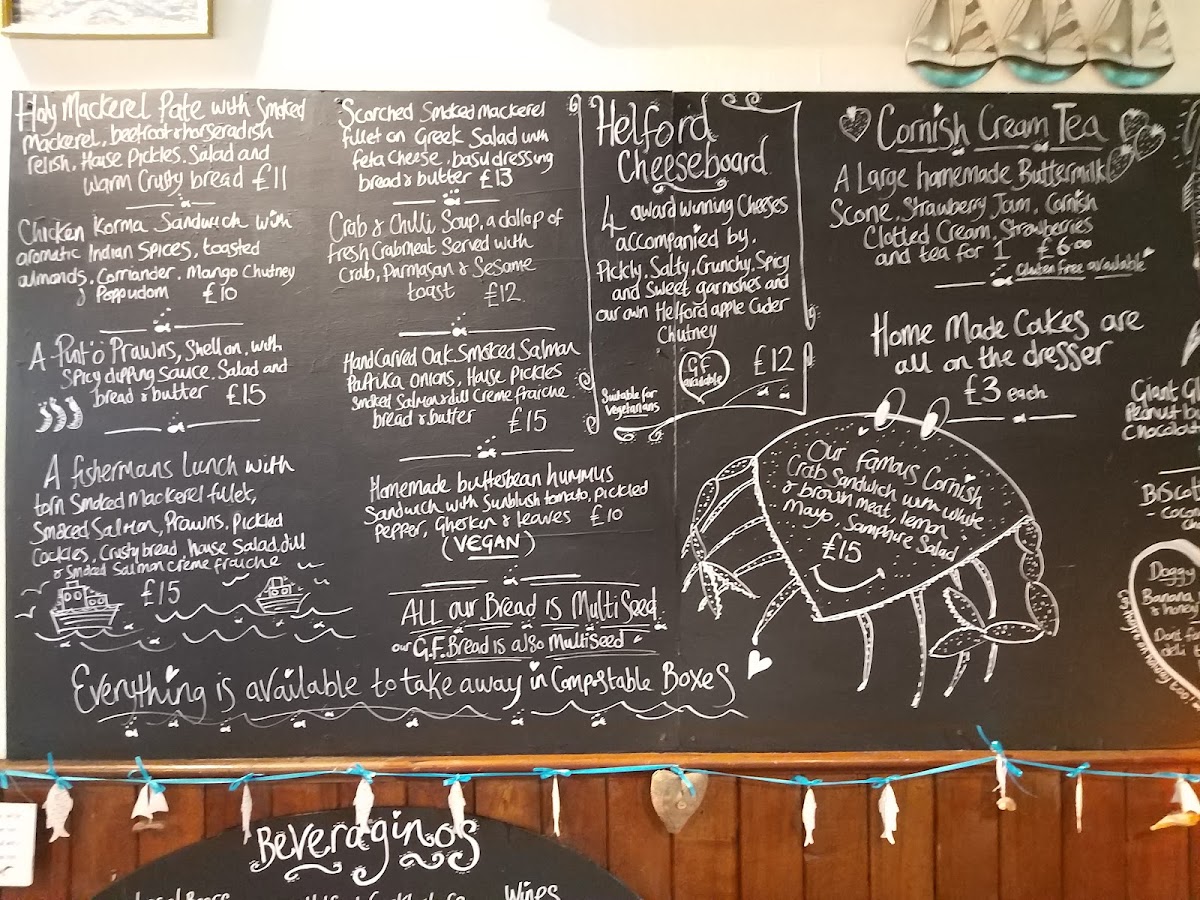 Holy Mackerel Pate with Smoked
Mackerel, beetroot & horseradish
relish, House Pickles. Salad and
warm Crusty bread £11
Chicken Korma Sandwich with
aromatic Indian Spices, toasted
almonds, Corriander, Mango Chutney
& Poppudom £10
A Pint o Prawns, Shell on, with
Spicy dipping sauce. Salad and
bread & butter £15
A fishermans Lunch with
torn Smoked Mackerel fillet,
Smoked Salmon, Prawns, Pickled
Cockles, Crusty bread, house Salad, dill
& Smoked Salmon creme fraiche
£15
Scorched Smoked Mackerel
fillet on Greek Salad with
feta Cheese, basil dressing
bread & butter £13
Crab & Chilli Soup, a dollop of
fresh Crabmeat Served with
Crab, Parmasan & Sesame
toast £12
Hand Carved Oak Smoked Salmon
Paprika onions, House Pickles
Smoked Salmon & dill Creme fraiche.
bread & butter £15
Homemade butterbean hummus
Sandwich with Sunblush tomato, Pickled
Pepper, Gherkin & leaves £10
(VEGAN)
ALL our Bread is Multi Seed
our G.F. Bread is also Multiseed
Everything is available to take away in Compostable Boxes
Helford
Cheeseboard
4 award winning Cheeses
accompanied by.
Pickly, Salty, Crunchy, Spicy
and Sweet garnishes and
our own Helford apple Cider
Chutney
G.F available
£12
Suitable for
Vegetarians
Cornish Cream Tea
A Large homemade Buttermilk
Scone, Strawberry Jam, Cornish
Clotted Cream, Strawberries
and tea for 1 £6.00
Gluten free available
Home Made Cakes are
all on the dresser
£3 each
Our Famous Cornish
Crab Sandwich with white
& brown meat, lemon
mayo, Samphire Salad
£15
Giant
Peanut
Chocolat
Doggy
Banana
& honey
Beveraginos
Wines